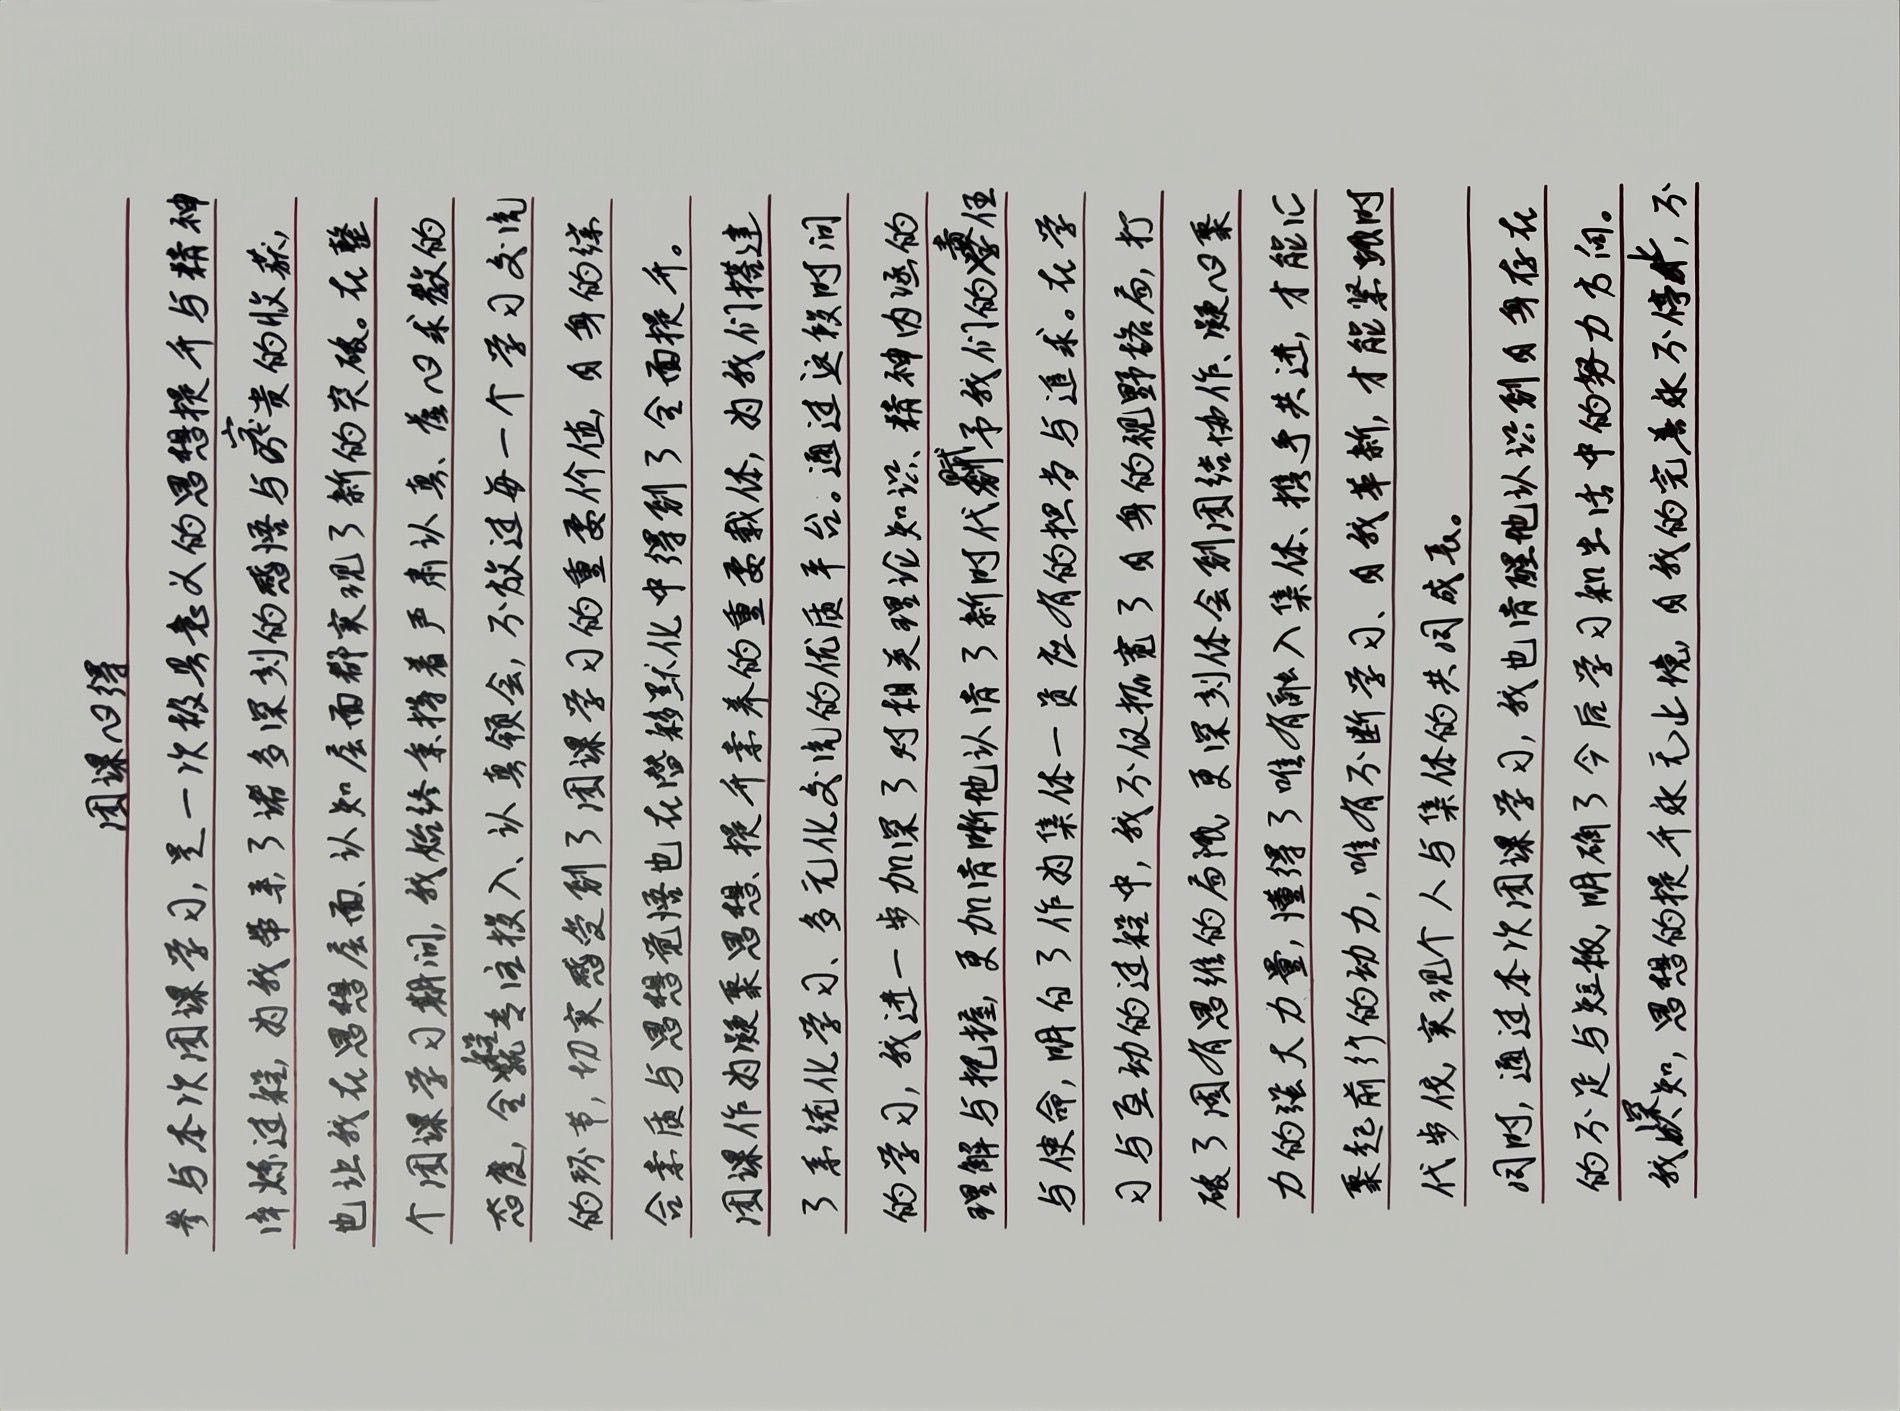 团课心得
参与本次团课学习,是一次极具意义的思想提升与精神
淬炼过程,为我带来了诸多深刻的感悟与宝贵的收获,
也让我在思想层面、认知层面都实现了新的突破。在整
个团课学习期间,我始终秉持着严肃认真、虚心求教的
态度,全程专注投入、认真领会,不放过每一个学习交流
的环节,切实感受到了团课学习的重要价值,自身的综
合素质与思想觉悟也在潜移默化中得到了全面提升。
团课作为凝聚思想、提升素养的重要载体,为我们搭建
了系统化学习、多元化交流的优质平台。通过这段时间
的学习,我进一步加深了对相关理论知识、精神内涵的
理解与把握,更加清晰地认清了新时代赋予我们的责任
与使命,明白了作为集体一员应有的担当与追求。在学
习与互动的过程中,我不仅拓宽了自身的视野格局,打
破了固有思维的局限,更深刻体会到团结协作、凝心聚
力的强大力量,懂得了唯有融入集体、携手共进,才能汇
聚起前行的动力,唯有不断学习、自我革新,才能紧跟时
代步伐,实现个人与集体的共同成长。
同时,通过本次团课学习,我也清醒地认识到自身存在
的不足与短板,明确了今后学习和生活中的努力方向。
我深知,思想的提升永无止境,自我的完善永不停止,不